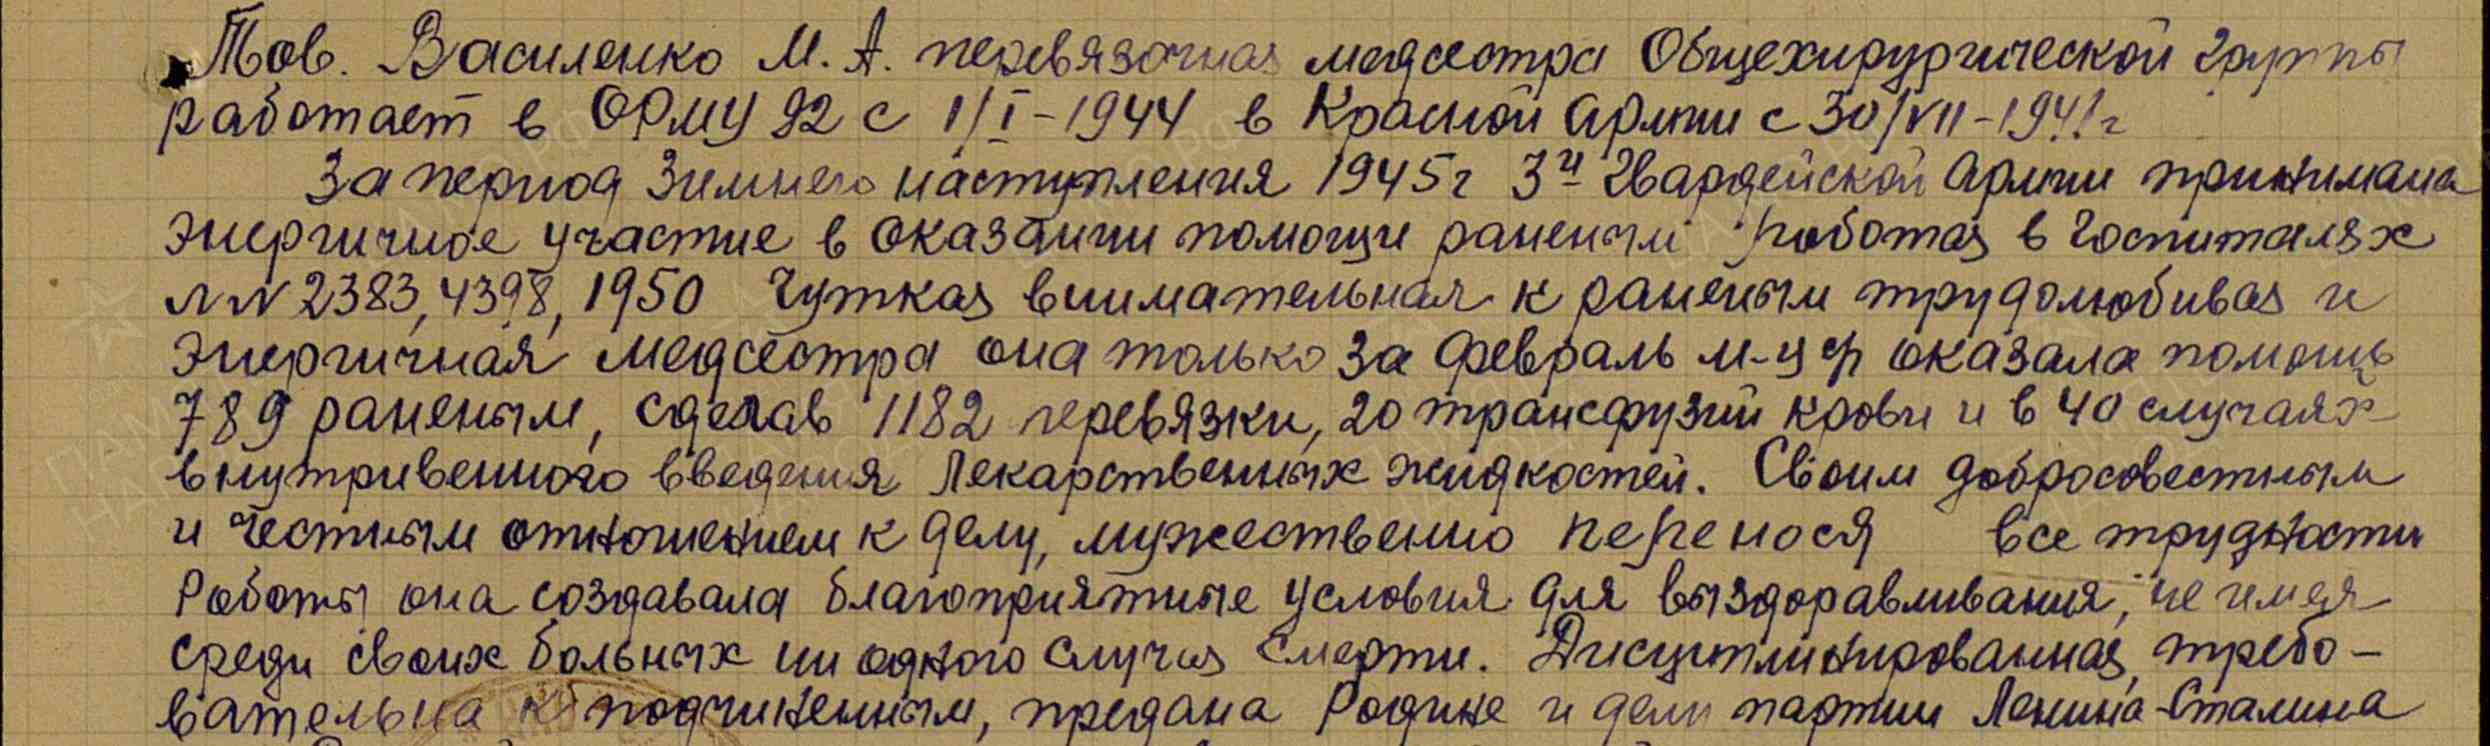 Тов. Василенко М. А. перевязочная медсестра Общехирургической группы
работает в ОРМУ 92 с 1/I-1944 в Красной Армии с 30/VII-1941г
За период Зимнего наступления 1945г 3й Гвардейской Армии принимала
энергичное участие в оказании помощи раненым работая в госпиталях
NN 2383, 4398, 1950 Чуткая внимательная к раненым трудолюбивая и
энергичная медсестра она только за февраль м-ц оказала помощь
789 раненым, сделав 1182 перевязки, 20 трансфузий крови и в 40 случаях
внутривенного введения Лекарственных жидкостей. Своим добросовестным
и честным отношением к делу, мужественно перенося все трудности
работы она создавала благоприятные условия для выздоравливания, не имея
среди своих больных ни одного случая смерти. Дисциплинированная, требо-
вательна к подчиненным, предана Родине и делу партии Ленина-Сталина